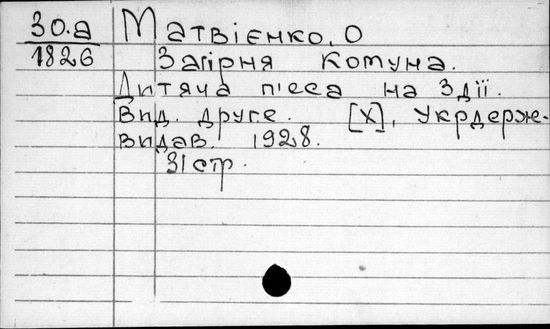 30.а Матвієнко, О
1826 Загірня комуна.
Дитяча п'єса на 3 дії.
Вид. друге. [Х], Укрдерж-
видав. 1928.
31 стр.